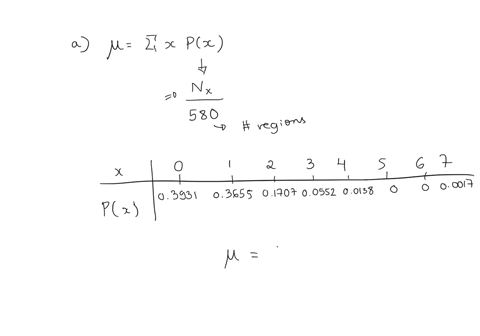 a) μ = Σ x P(x)
↓
=> Nx
580
→ # regions
x 0 1 2 3 4 5 6 7
P(x) 0.3931 0.3655 0.1707 0.0552 0.0138 0 0 0.0017
μ =